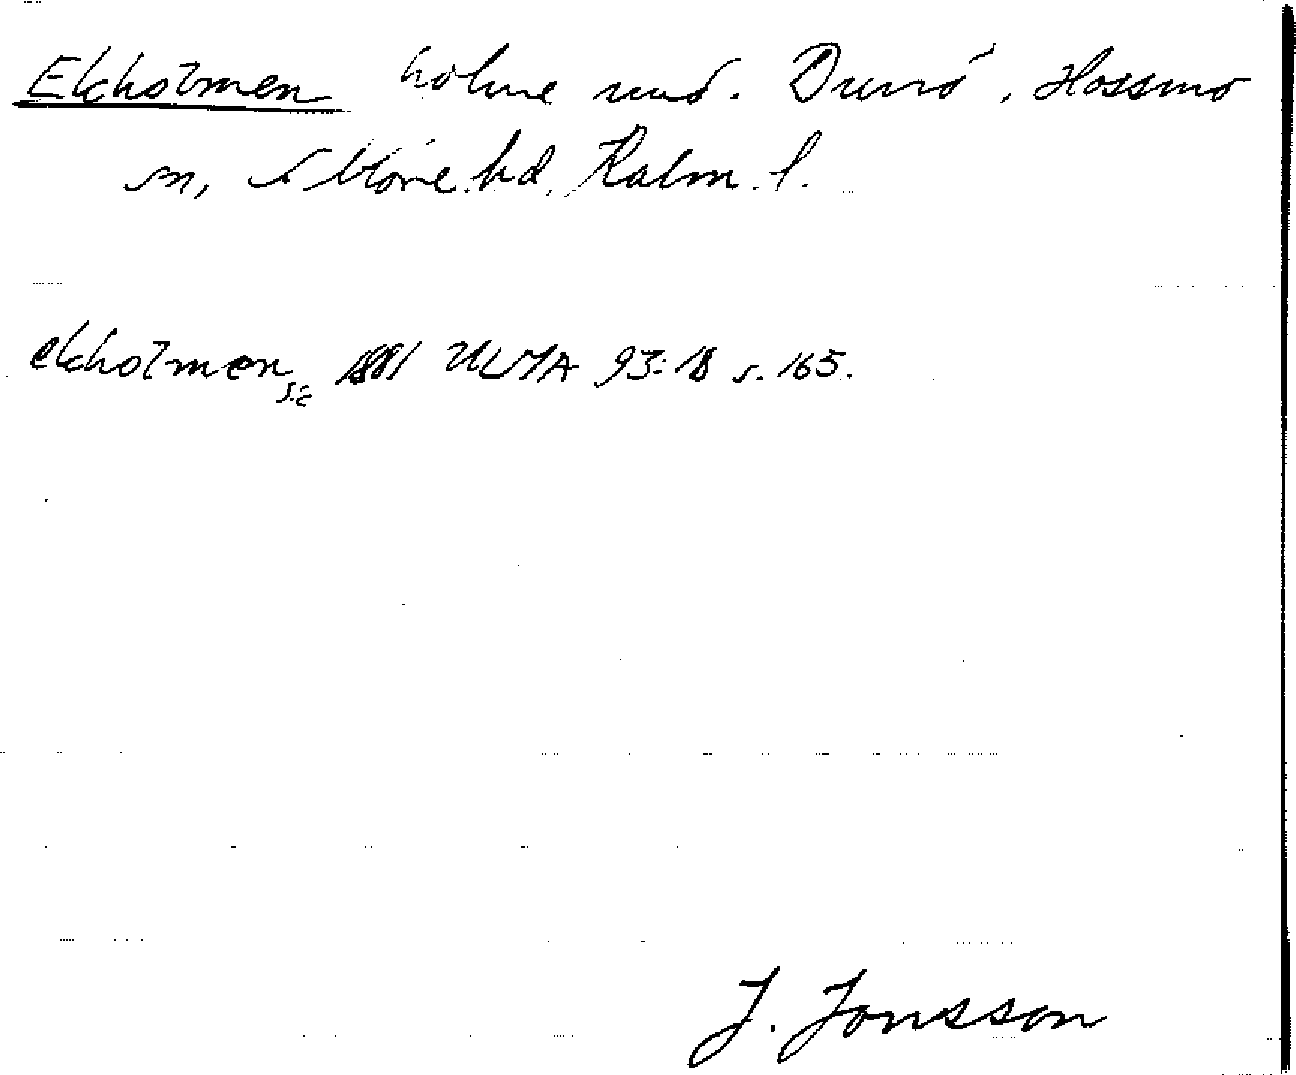 Ekholmen holme und. Dunö, Hossmo
sn, S Möre hd, Kalm. l.
ekholmen sic 1881 ULMA 93:18 s. 165.
J. Jonsson